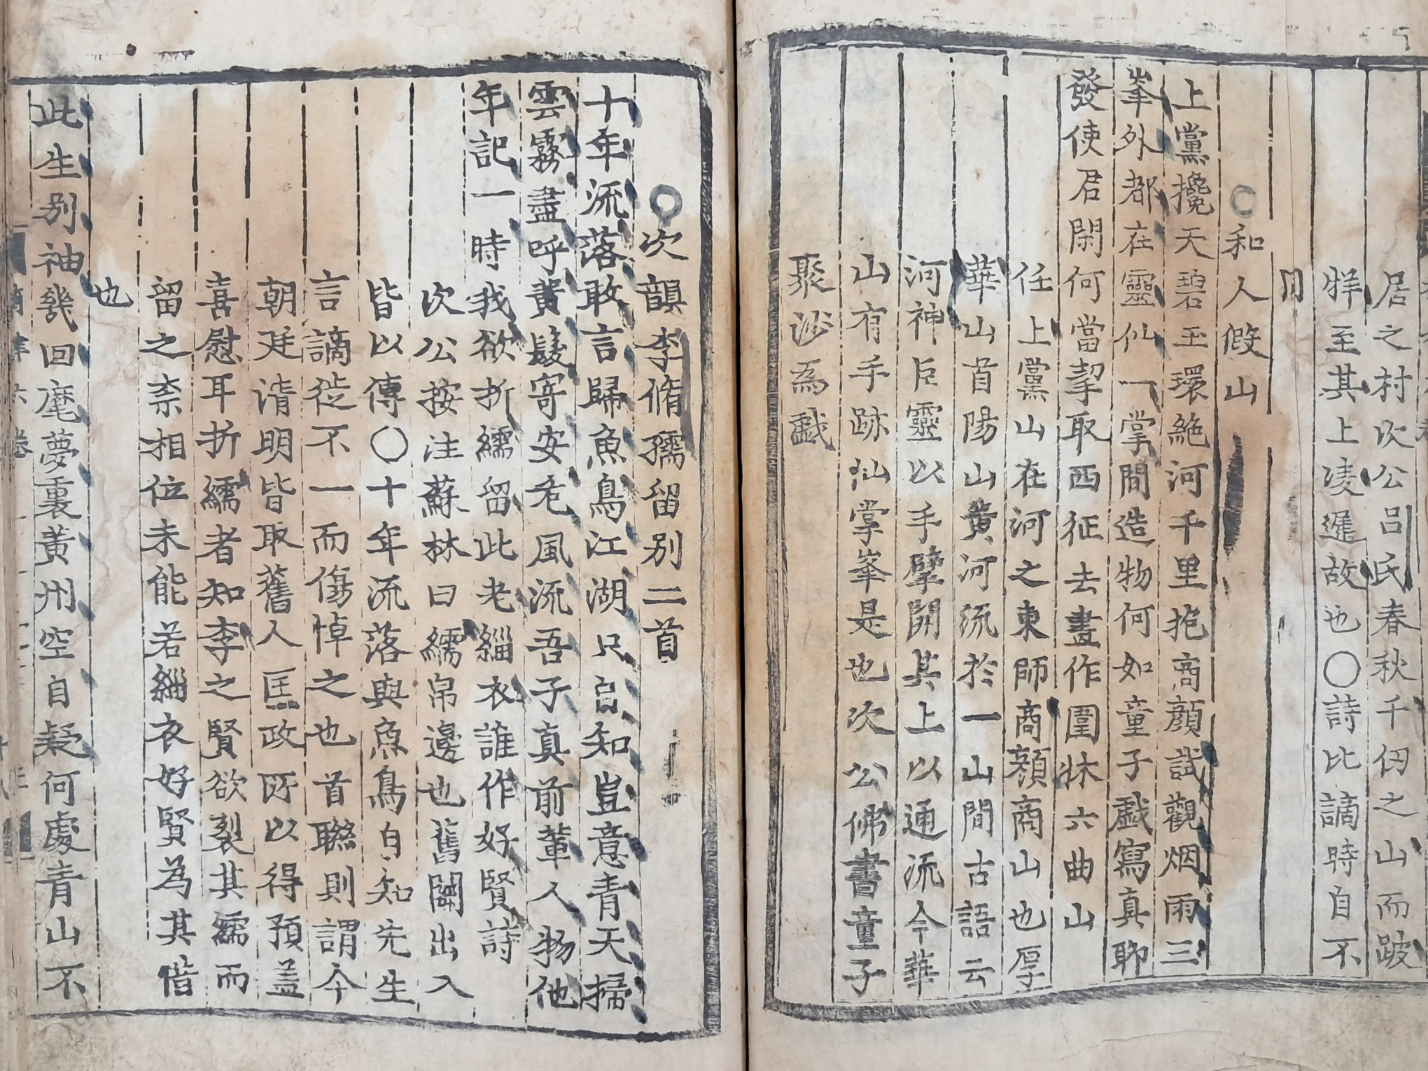 居之村次公呂氏春秋千仞之山而跛
牂至其上凌遲故也〇詩比謫時自不
同
〇和人假山
上黨攙天碧玉環絶河千里抱商顔試觀烟雨三
峯外都在靈仙一掌間造物何如童子戱寫真聊
發使君閑何當挈取西征去畫作圍牀六曲山
任上黨山在河之東師商顔商山也厚
華山首陽山黄河流於一山間古語云
河神巨靈以手擘開其上以通流今華
山有手跡仙掌峯是也次公佛書童子
聚沙為戱
〇次韻李脩孺留别二首
十年流落敢言歸魚鳥江湖只自知豈意青天掃
雲霧盡呼黄髮寄安危風流吾子真前軰人物他
年記一時我欲折繻留此老緇衣誰作好賢詩
次公按注蘇林曰繻帛邊也舊關出入
皆以傳〇十年流落與魚鳥自知先生
言謫徙不一而傷悼之也首聯則謂今
朝廷清明皆取舊人匡政所以得預盖
喜慰耳折繻者知李之賢欲裂其繻而
留之柰相位未能若緇衣好賢為其借
也
此生别袖幾回麾夢裏黄州空自疑何處青山不